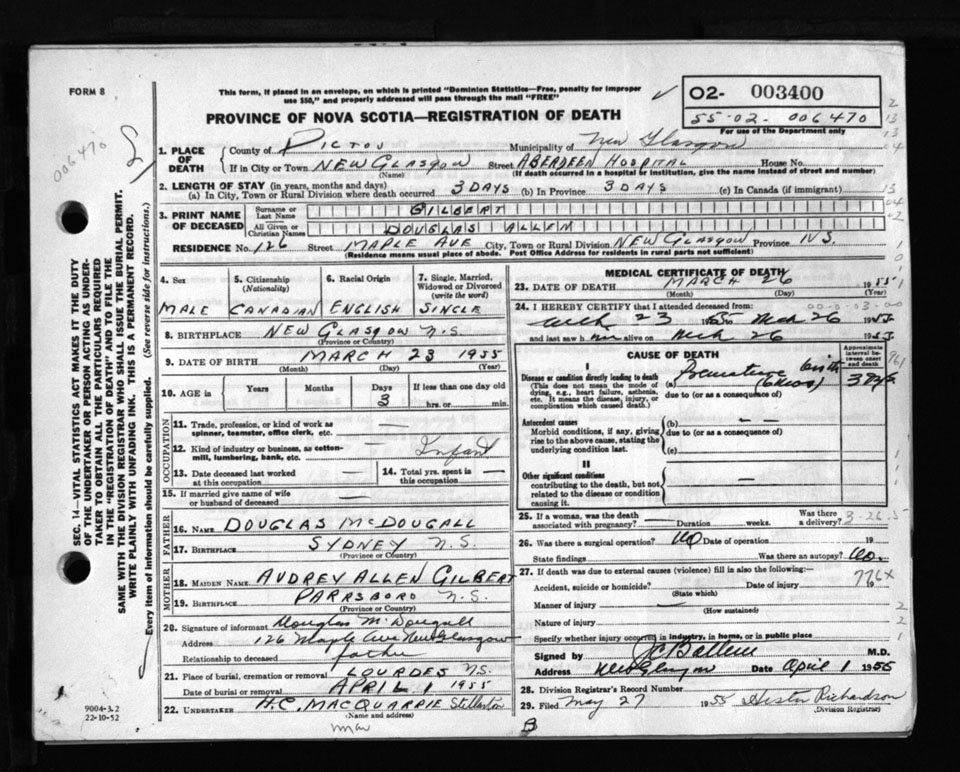 FORM 8
This form, if placed in an envelope, on which is printed "Dominion Statistics—Free, penalty for improper
use $50," and properly addressed will pass through the mail "FREE"
02- 003400
55-02-006470
For use of the Department only
006470
PROVINCE OF NOVA SCOTIA—REGISTRATION OF DEATH
1. PLACE OF DEATH
County of PICTOU Municipality of New Glasgow
If in City or Town NEW GLASGOW Street ABERDEEN HOSPITAL House No.
(Name) (If death occurred in a hospital or institution, give the name instead of street and number)
2. LENGTH OF STAY (in years, months and days)
(a) In City, Town or Rural Division where death occurred 3 DAYS (b) In Province 3 DAYS (c) In Canada (if immigrant)
3. PRINT NAME OF DECEASED
Surname or Last Name GILBERT
All Given or Christian Names DOUGLAS ALLEN
RESIDENCE No. 126 Street MAPLE AVE City, Town or Rural Division NEW GLASGOW Province N.S.
(Residence means usual place of abode. Post Office Address for residents in rural parts not sufficient)
4. Sex
MALE
5. Citizenship (Nationality)
CANADIAN
6. Racial Origin
ENGLISH
7. Single, Married, Widowed or Divorced (write the word)
SINGLE
8. BIRTHPLACE NEW GLASGOW N.S.
(Province or Country)
9. DATE OF BIRTH MARCH 23 1955
(Month) (Day) (Year)
10. AGE in
Years Months Days If less than one day old
3 hrs. or min.
OCCUPATION
11. Trade, profession, or kind of work as spinner, teamster, office clerk, etc. —
12. Kind of industry or business, as cotton-mill, lumbering, bank, etc. Infant
13. Date deceased last worked at this occupation —
14. Total yrs. spent in this occupation —
15. If married give name of wife or husband of deceased —
FATHER
16. NAME DOUGLAS McDOUGALL
17. BIRTHPLACE SYDNEY N.S.
(Province or Country)
MOTHER
18. MAIDEN NAME AUDREY ALLEN GILBERT
19. BIRTHPLACE PARRSBORO N.S.
(Province or Country)
20. Signature of informant Douglas McDougall
Address 126 Maple Ave New Glasgow
Relationship to deceased father
21. Place of burial, cremation or removal LOURDES N.S.
Date of burial or removal APRIL 1 1955
22. UNDERTAKER H.C. MACQUARRIE Stellarton
(Name and address)
MEDICAL CERTIFICATE OF DEATH
23. DATE OF DEATH MARCH 26 1955
(Month) (Day) (Year)
24. I HEREBY CERTIFY that I attended deceased from:
23 1955 26 1955
and last saw h alive on 26 1955
CAUSE OF DEATH
Approximate interval between onset and death
I
Disease or condition directly leading to death
(This does not mean the mode of dying, e.g., heart failure, asthenia, etc. It means the disease, injury, or complication which caused death.)
(a) Premature birth
due to (or as a consequence of)
3 days
Antecedent causes
Morbid conditions, if any, giving rise to the above cause, stating the underlying condition last.
(b) — —
due to (or as a consequence of)
(c)
II
Other significant conditions
contributing to the death, but not related to the disease or condition causing it.
—
25. If a woman, was the death associated with pregnancy? — Duration weeks. Was there a delivery?
26. Was there a surgical operation? No Date of operation 19
State findings Was there an autopsy? No.
27. If death was due to external causes (violence) fill in also the following:—
Accident, suicide or homicide? Date of injury 19
(State which)
776X
Manner of injury —
(How sustained)
Nature of injury
Specify whether injury occurred in industry, in home, or in public place
Signed by M.D.
Address New Glasgow Date April 1 1955
28. Division Registrar's Record Number
29. Filed May 27 1955 Hester Richardson
(Division Registrar)
SEC. 14—VITAL STATISTICS ACT MAKES IT THE DUTY
OF THE UNDERTAKER OR PERSON ACTING AS UNDER-
TAKER TO OBTAIN ALL THE PARTICULARS REQUIRED
IN THE "REGISTRATION OF DEATH" AND TO FILE THE
SAME WITH THE DIVISION REGISTRAR WHO SHALL ISSUE THE BURIAL PERMIT.
WRITE PLAINLY WITH UNFADING INK. THIS IS A PERMANENT RECORD.
Every item of information should be carefully supplied. (See reverse side for instructions.)
9004-3.2
22-10-52
B